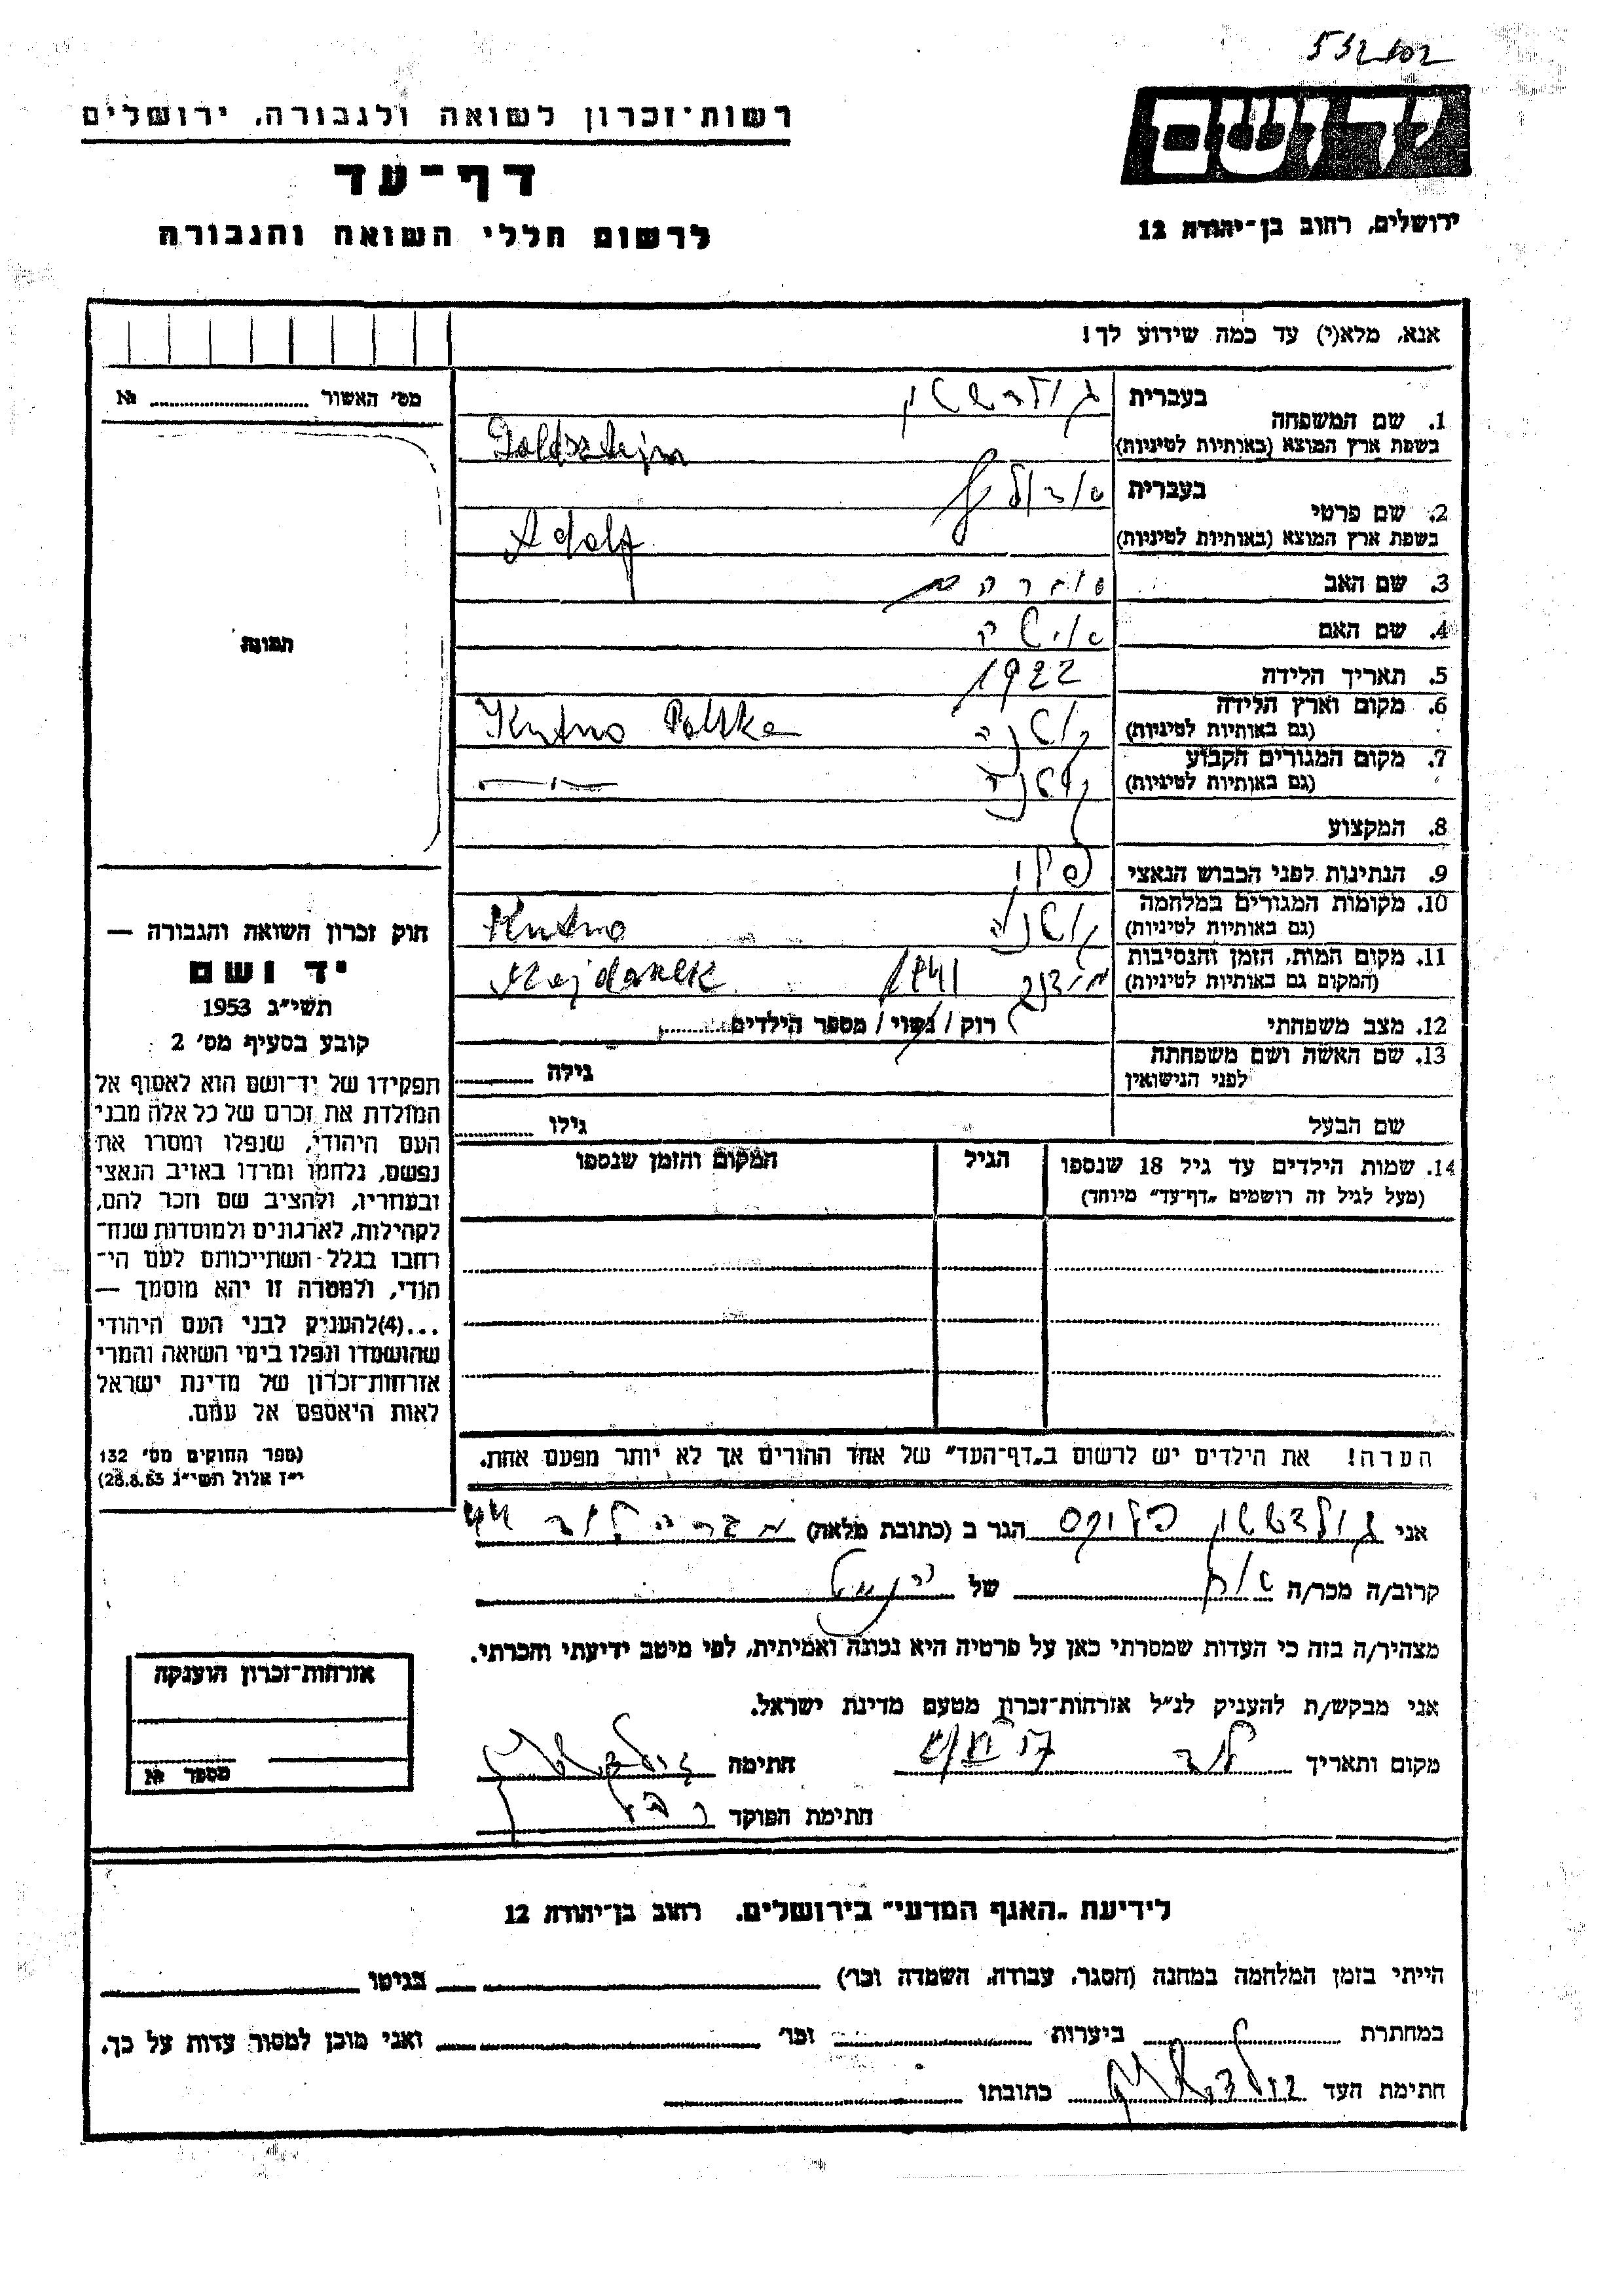 532102
יד ושם
ירושלים, רחוב בן־יהודה 12
רשות־זכרון לשואה ולגבורה, ירושלים
דף־עד
לרשום חללי השואה והגבורה
אנא, מלא(י) עד כמה שידוע לך!
מס׳ האשור №
תמונה
בעברית
1. שם המשפחה גולדשטין
בשפת ארץ המוצא (באותיות לטיניות) Goldsztejn
בעברית אדולף
2. שם פרטי
בשפת ארץ המוצא (באותיות לטיניות) Adolf
3. שם האב אברהם
4. שם האם
5. תאריך הלידה 1922
6. מקום וארץ הלידה קוטנה Kutno Polska
(גם באותיות לטיניות)
7. מקום המגורים הקבוע קוטנה —״—
(גם באותיות לטיניות)
8. המקצוע
9. הנתינות לפני הכבוש הנאצי פולין
10. מקומות המגורים במלחמה קוטנה Kutno
(גם באותיות לטיניות)
11. מקום המות, הזמן והנסיבות מידנק 1941 Majdanek
(המקום גם באותיות לטיניות)
12. מצב משפחתי רוק / נשוי / מספר הילדים
13. שם האשה ושם משפחתה גילה
לפני הנישואין
שם הבעל גילו
14. שמות הילדים עד גיל 18 שנספו הגיל המקום והזמן שנספו
(מעל לגיל זה רושמים „דף־עד״ מיוחד)
הערה! את הילדים יש לרשום ב„דף־העד״ של אחד ההורים אך לא יותר מפעם אחת.
חוק זכרון השואה והגבורה —
יד ושם
תשי״ג 1953
קובע בסעיף מס׳ 2
תפקידו של יד־ושם הוא לאסוף אל
המולדת את זכרם של כל אלה מבני
העם היהודי, שנפלו ומסרו את
נפשם, נלחמו ומרדו באויב הנאצי
ובעוזריו, ולהציב שם וזכר להם,
לקהילות, לארגונים ולמוסדות שנח־
רבו בגלל השתייכותם לעם הי־
הודי, ולמטרה זו יהא מוסמך —
...(4)להעניק לבני העם היהודי
שהושמדו ונפלו בימי השואה והמרי
אזרחות־זכרון של מדינת ישראל
לאות היאספם אל עמם.
(ספר החוקים מס׳ 132
י״ז אלול תשי״ג 28.8.53)
אני גולדשטין פלוקס הגר ב (כתובת מלאה) לוד 44
קרוב/ה מכר/ה אח של
מצהיר/ה בזה כי העדות שמסרתי כאן על פרטיה היא נכונה ואמיתית, לפי מיטב ידיעתי והכרתי.
אני מבקש/ת להעניק לנ״ל אזרחות־זכרון מטעם מדינת ישראל.
מקום ותאריך לוד חתימה גולדשטין
חתימת הפוקד
אזרחות־זכרון הוענקה
מספר №
לידיעת „האגף המדעי״ בירושלים, רחוב בן־יהודה 12
הייתי בזמן המלחמה במחנה (הסגר, עבודה, השמדה וכו׳) בגיטו
במחתרת ביערות וכו׳ ואני מוכן למסור עדות על כך.
חתימת העד גולדשטין כתובתו